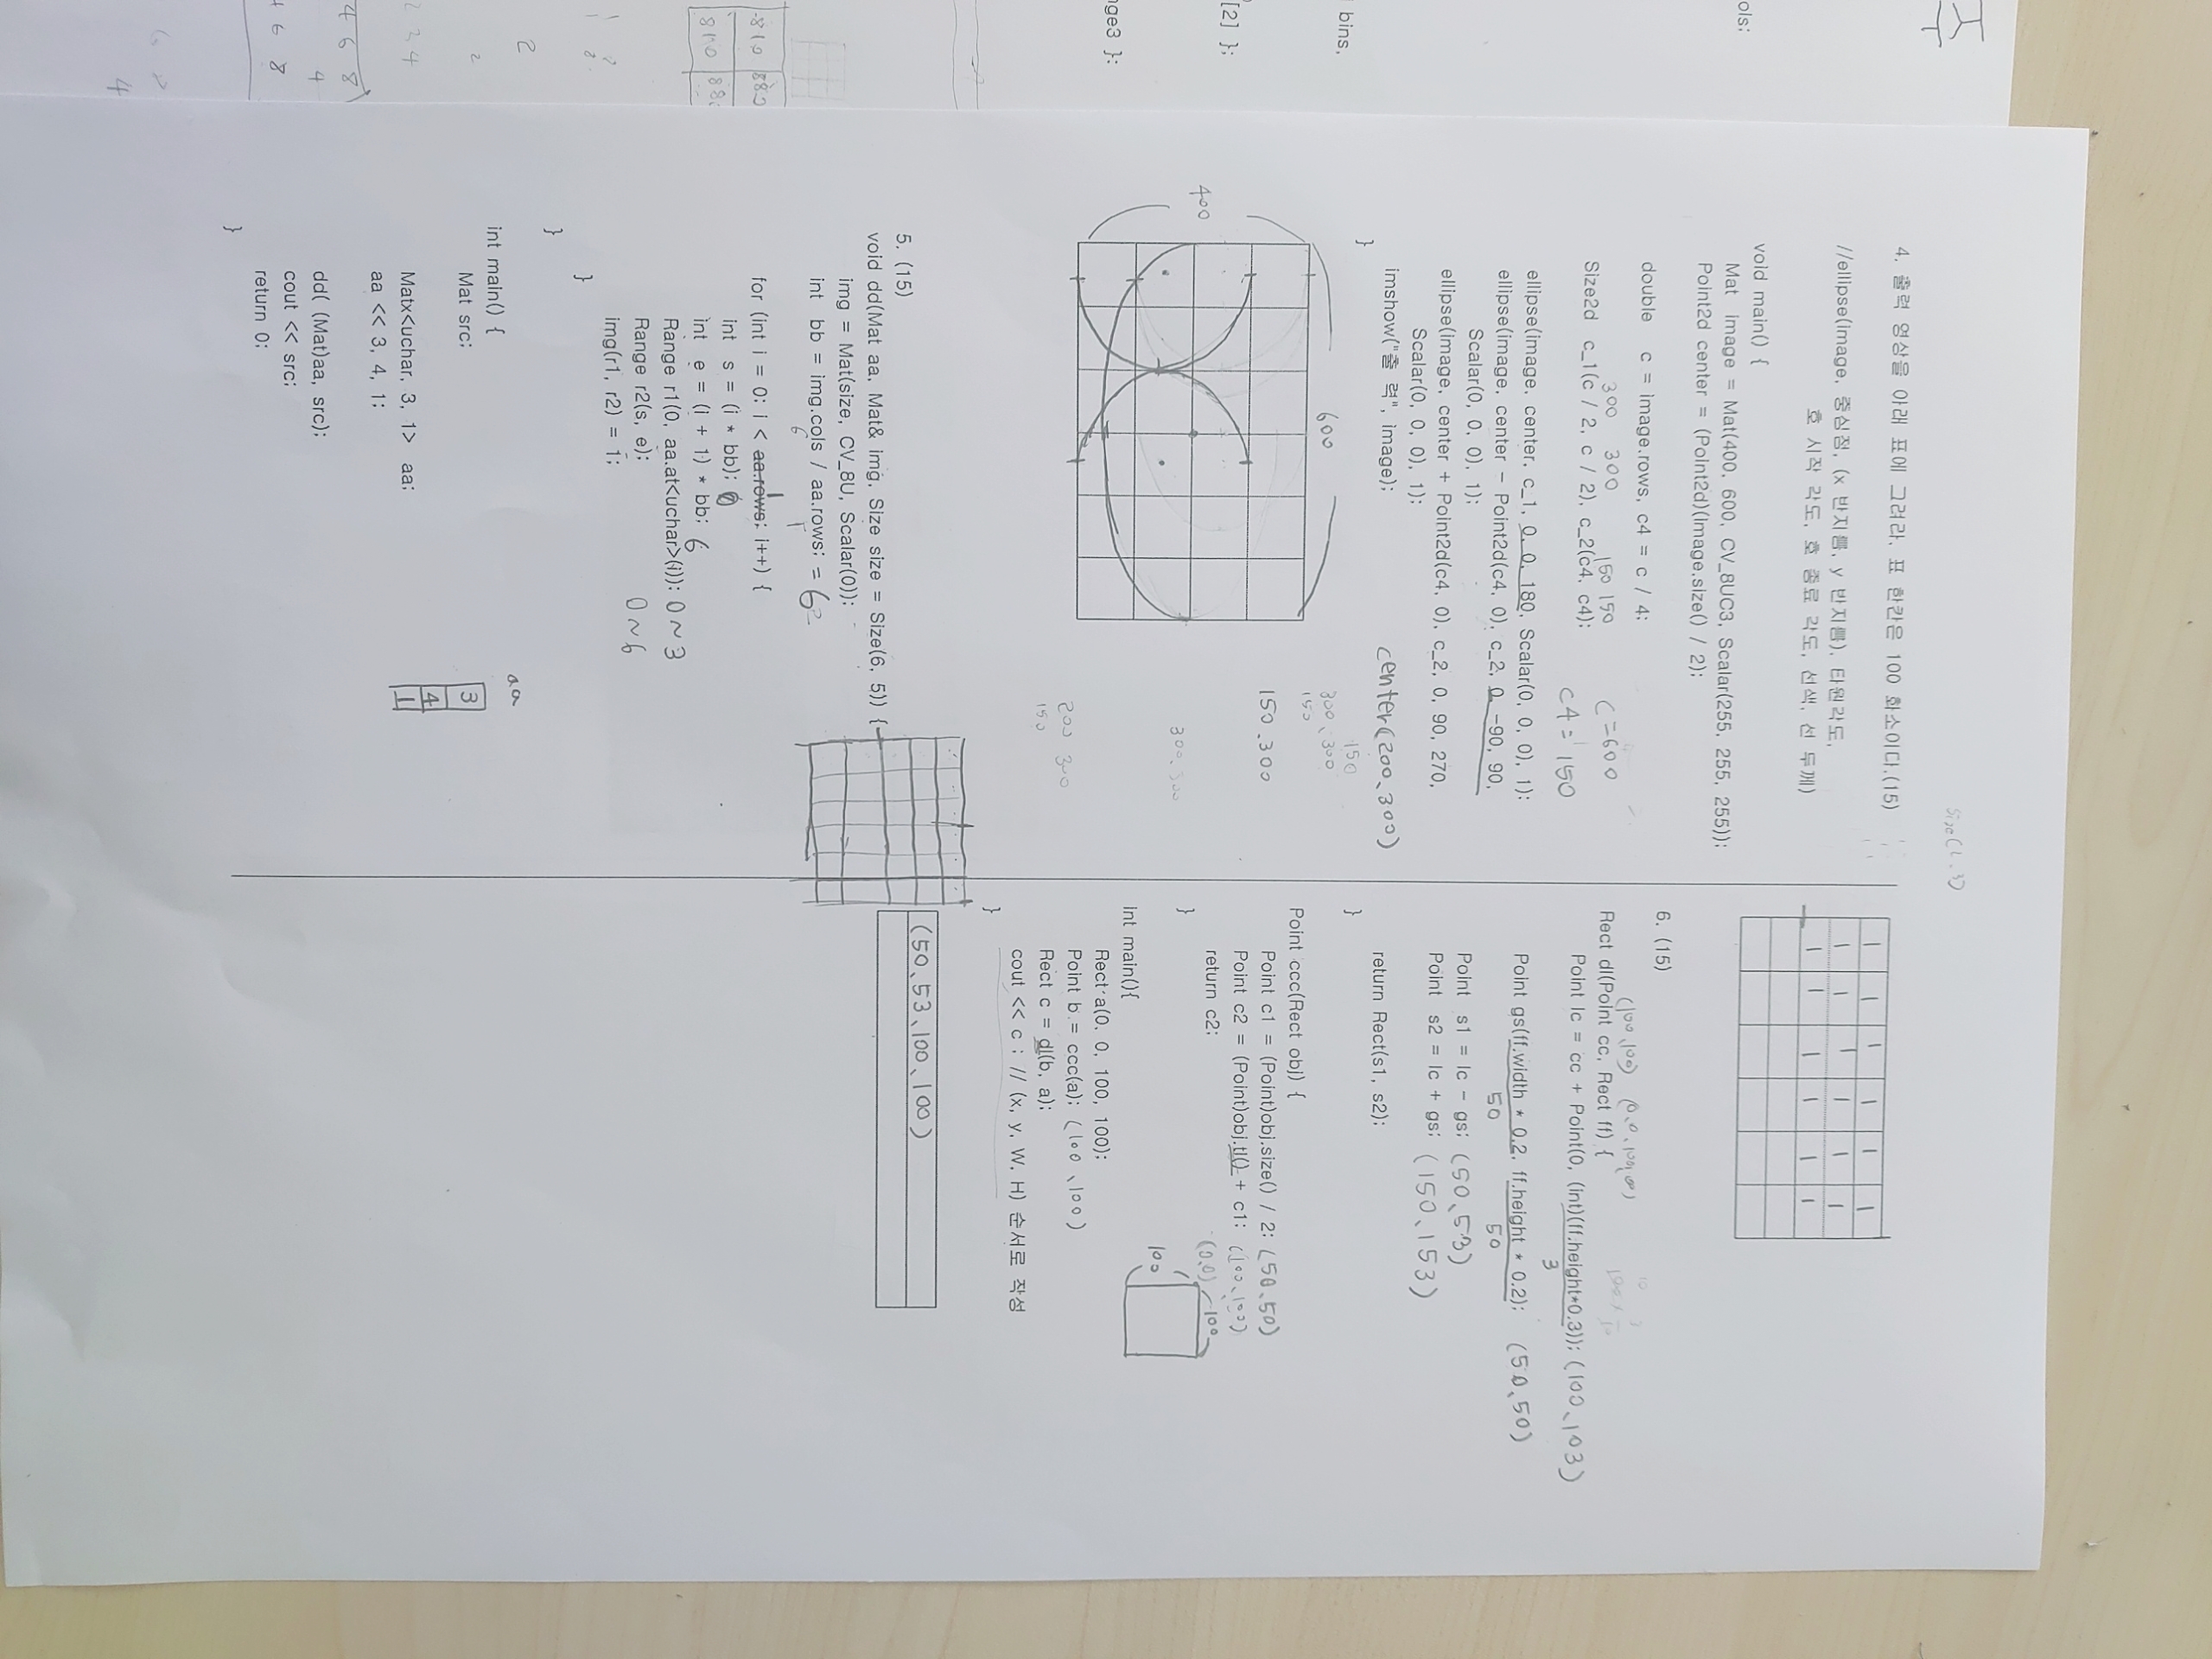 Size(2.3)
주
ols;
bins,
[2] };
nge3 };
-810 880
810 88
2
2
2 3 4
4 6 8
4
4 6 8
6 8
4
4. 출력 영상을 아래 표에 그려라. 표 한칸은 100 화소이다.(15)
//ellipse(image, 중심점, (x 반지름, y 반지름), 타원각도,
호 시작 각도, 호 종료 각도, 선색, 선 두께)
void main() {
Mat image = Mat(400, 600, CV_8UC3, Scalar(255, 255, 255));
Point2d center = (Point2d)(image.size() / 2);
double c = image.rows, c4 = c / 4;
300 300 150 150 C=600
Size2d c_1(c / 2, c / 2), c_2(c4, c4);
C4= 150
ellipse(image, center, c_1, 0, 0, 180, Scalar(0, 0, 0), 1);
ellipse(image, center - Point2d(c4, 0), c_2, 0, -90, 90,
Scalar(0, 0, 0), 1);
ellipse(image, center + Point2d(c4, 0), c_2, 0, 90, 270,
Scalar(0, 0, 0), 1);
imshow("출 력", image); center(200、300)
}
150
600 300、300
150
150 .300
400
300.300
200 300
150
5. (15)
void dd(Mat aa, Mat& img, Size size = Size(6, 5)) {
img = Mat(size, CV_8U, Scalar(0));
int bb = img.cols / aa.rows; = 6
6 1
1
for (int i = 0; i < aa.rows; i++) {
int s = (i * bb); 0
int e = (i + 1) * bb; 6
Range r1(0, aa.at<uchar>(i)); 0 ~ 3
Range r2(s, e); 0 ~ 6
img(r1, r2) = 1;
}
}
aa
int main() {
Mat src; 3
4
Matx<uchar, 3, 1> aa; 1
aa << 3, 4, 1;
dd( (Mat)aa, src);
cout << src;
return 0;
}
1 1 1 1 1 1
1 1 1 1 1 1
1 1 1 1 1 1
6. (15)
(100,100) (0.0.100,100)
Rect dl(Point cc, Rect ff) {
Point lc = cc + Point(0, (int)(ff.height*0.3)); (100、103)
3
Point gs(ff.width * 0.2, ff.height * 0.2); (50、50)
50 50
Point s1 = lc - gs; (50、53)
Point s2 = lc + gs; (150、153)
return Rect(s1, s2);
}
Point ccc(Rect obj) {
Point c1 = (Point)obj.size() / 2; (50、50)
Point c2 = (Point)obj.tl() + c1; (100、100)
return c2; (0,0) 100
}
100
int main(){
Rect a(0, 0, 100, 100);
Point b = ccc(a); (100、100)
Rect c = dl(b, a);
cout << c ; // (x, y, W, H) 순서로 작성
}
(50、53、100、100)